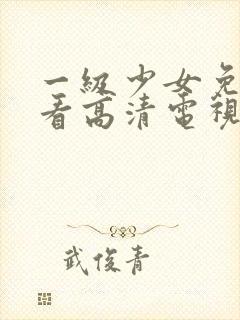 一級少女免
看高清電視
武俊青